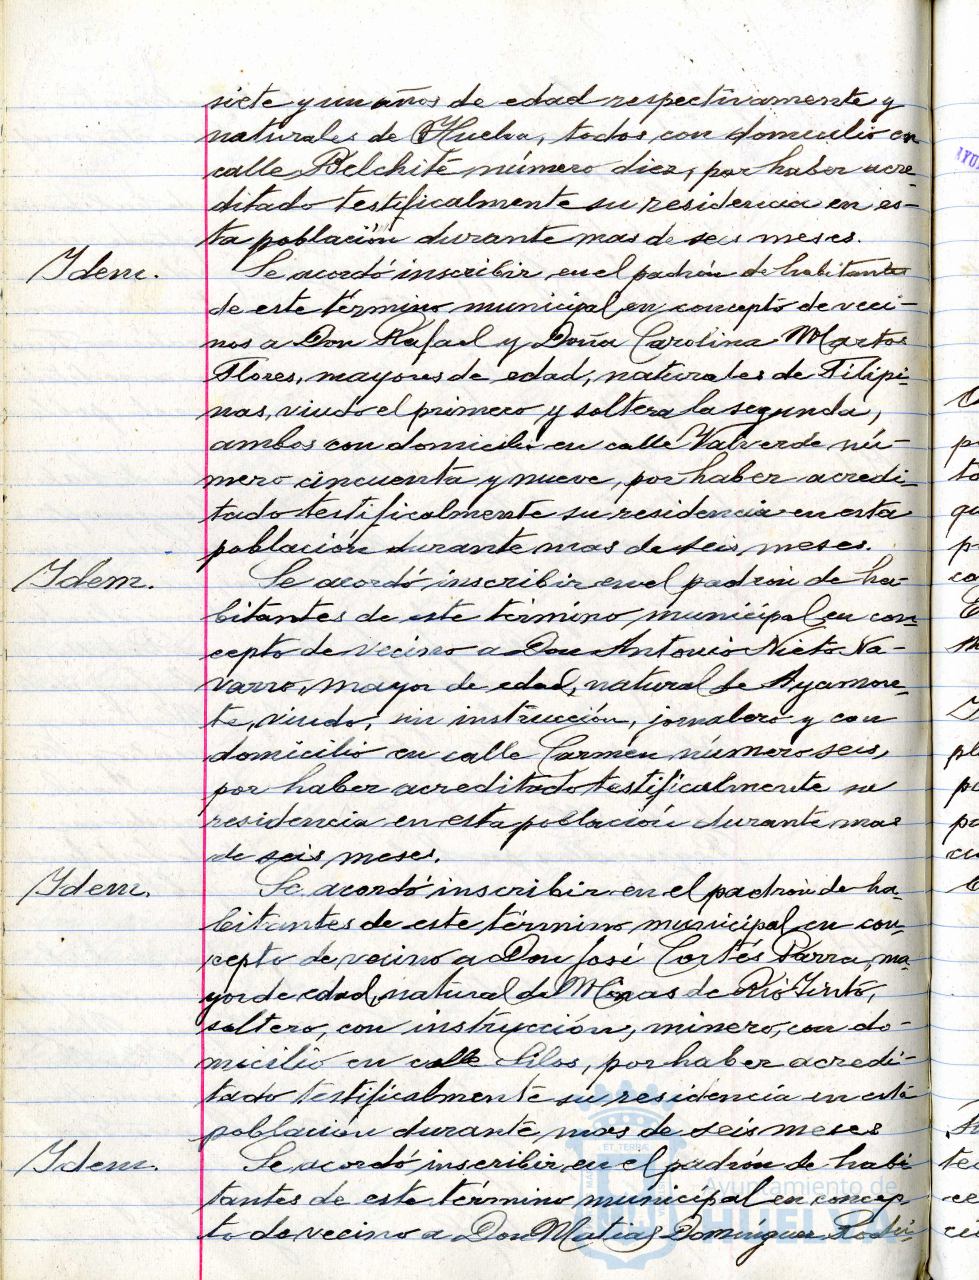 siete y un años de edad respectivamente y
naturales de Huelva, todos con domicilio en
calle Belchite número diez, por haber acre-
ditado testificalmente su residencia en es-
ta población durante mas de seis meses.
Idem. Se acordó inscribir en el padrón de habitantes
de este término municipal en concepto de veci-
nos a Don Rafael y Doña Carolina Martos
Flores, mayores de edad, naturales de Filipi-
nas, viudo el primero y soltera la segunda,
ambos con domicilio en calle Valverde nú-
mero cincuenta y nueve, por haber acredi-
tado testificalmente su residencia en esta
población durante mas de seis meses.
Idem. Se acordó inscribir en el padrón de ha-
bitantes de este término municipal en con-
cepto de vecino a Don Antonio Nieto Na-
varro, mayor de edad, natural de Ayamon-
te, viudo, sin instrucción, jornalero y con
domicilio en calle Carmen número seis,
por haber acreditado testificalmente su
residencia en esta población durante mas
de seis meses.
Idem. Se acordó inscribir en el padrón de ha-
bitantes de este término municipal en con-
cepto de vecino a Don José Cortés Parra, ma-
yor de edad, natural de Minas de Rio Tinto,
soltero, con instrucción, minero, con do-
micilio en calle Silos, por haber acredi-
tado testificalmente su residencia en esta
población durante mas de seis meses
Idem. Se acordó inscribir en el padrón de habi
tantes de este término municipal en concep
to de vecino a Don Matias Domínguez Rodrí-
Ayuntamiento de
HUELVA